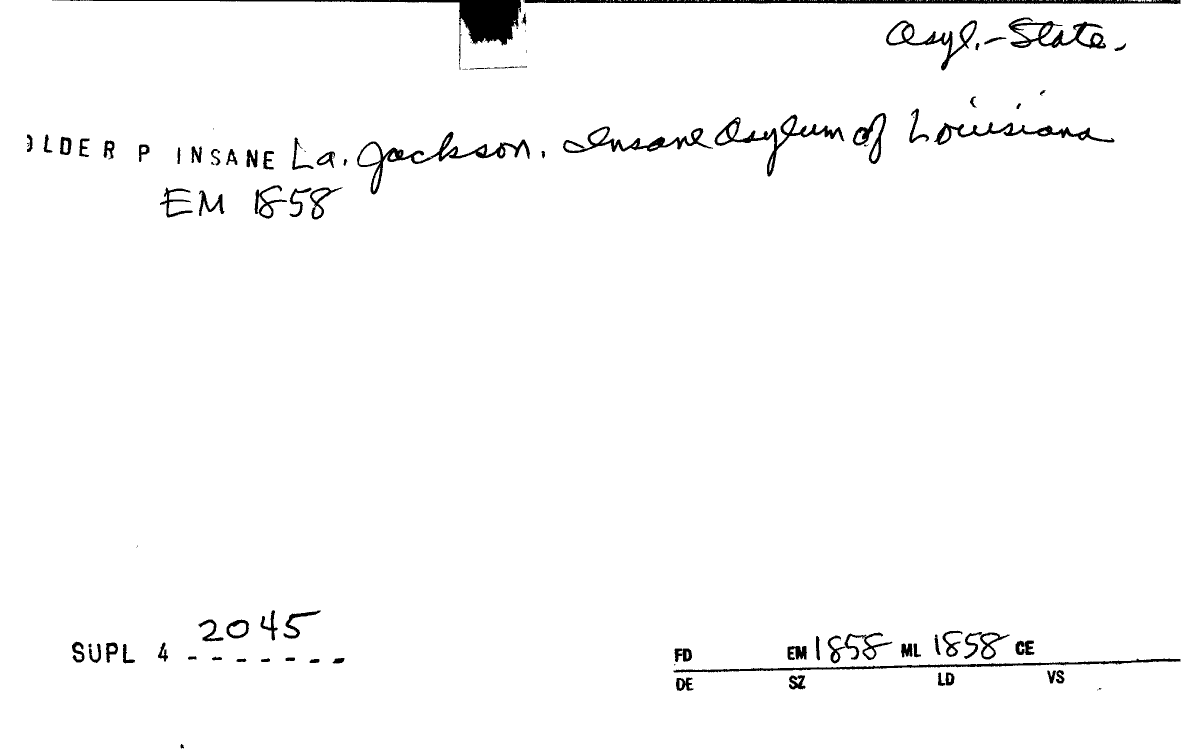 Asyl.-State.
OLDER P INSANE La. Jackson. Insane Asylum of Louisiana
EM 1858
SUPL 4 2045
FD EM 1858 ML 1858 CE
DE SZ LD VS